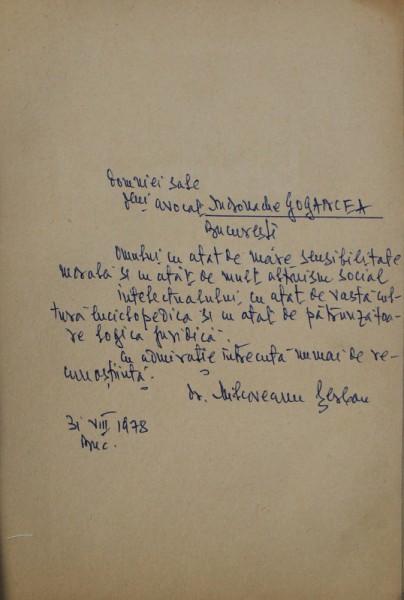 Domniei sale
avocat Mironache GOGANCEA
București
Omului cu atât de mare sensibilitate
morală și cu atât de mult altruism social
intelectualului, cu atât de vastă cul-
tură enciclopedică și cu atât de pătrunzătoa-
re logică juridică.
Cu admirație întrecută numai de re-
cunoștință.
dr. Milcoveanu Șerban
31 VIII 1978
Buc.